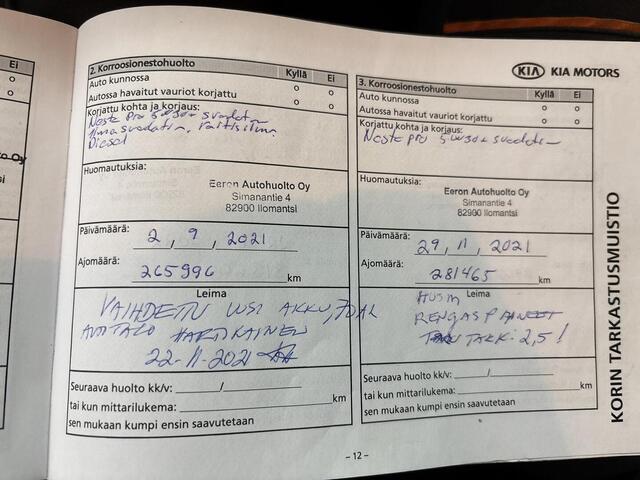 Ei
o
o
2. Korroosionestohuolto
Kyllä Ei
Auto kunnossa o o
Autossa havaitut vauriot korjattu o o
Korjattu kohta ja korjaus:
Neste Pro 5w30+ suodat.
Ilmasuodatin, raitisilma
Diesel
Huomautuksia:
Eeron Autohuolto Oy
Simanantie 4
82900 Ilomantsi
Päivämäärä: 2, 9, 2021
Ajomäärä:
265996 km
Leima
VAIHDETTU UUSI AKKU, 70Ah
AUTOTALO HARTIKAINEN
22-11-2021
Seuraava huolto kk/v: /
tai kun mittarilukema: km
sen mukaan kumpi ensin saavutetaan
KIA KIA MOTORS
3. Korroosionestohuolto
Kyllä Ei
Auto kunnossa o o
Autossa havaitut vauriot korjattu o o
Korjattu kohta ja korjaus:
Neste Pro 5w30+ suodatin
Huomautuksia:
Eeron Autohuolto Oy
Simanantie 4
82900 Ilomantsi
Päivämäärä: 29, 11, 2021
Ajomäärä:
281465 km
Leima
HUOM
RENGASPAINEET
TARK: 2,5!
Seuraava huolto kk/v: /
tai kun mittarilukema: km
sen mukaan kumpi ensin saavutetaan
KORIN TARKASTUSMUISTIO
- 12 -